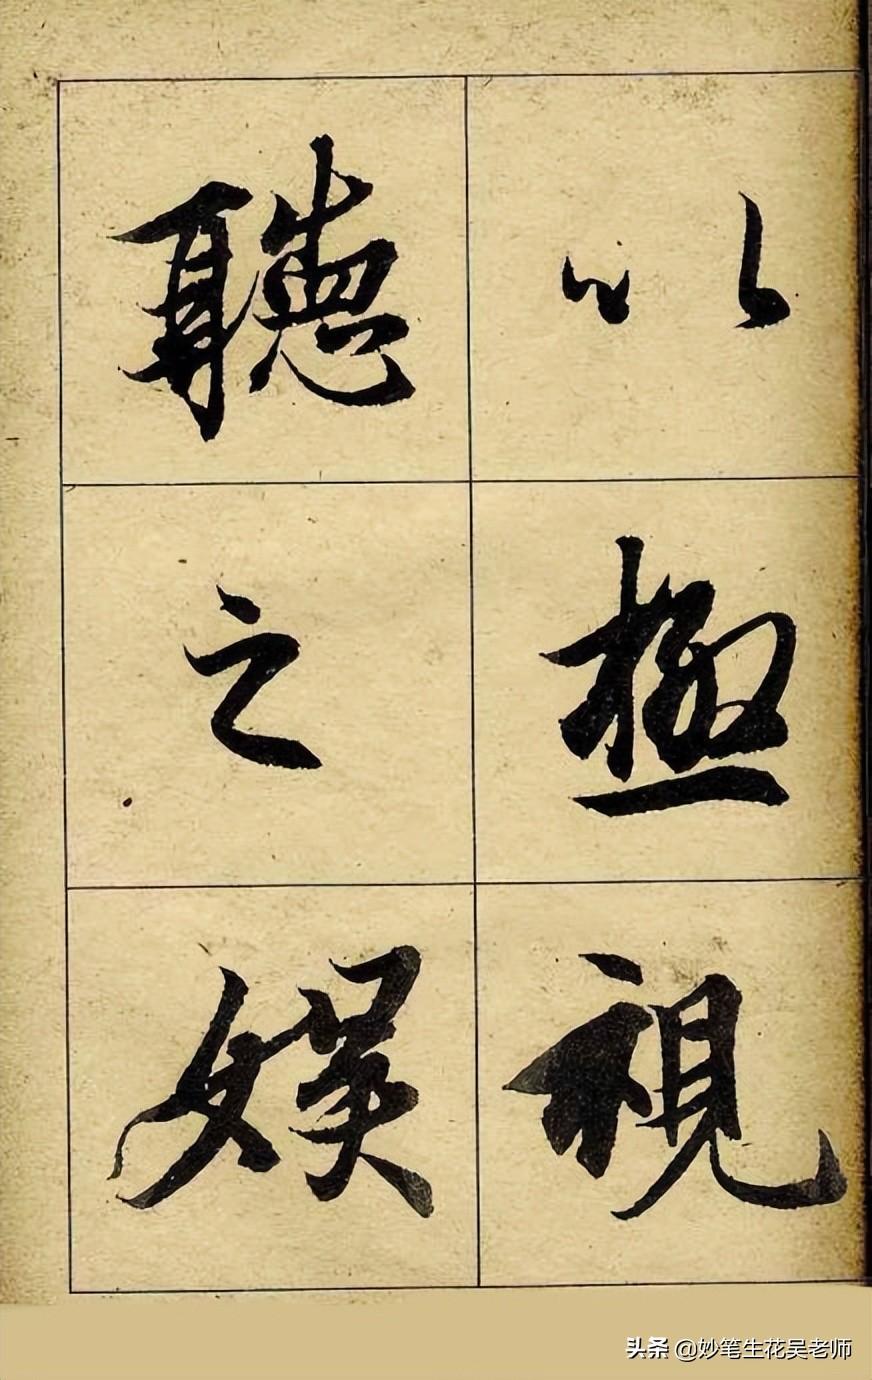 以極視
聽之娛
头条 @妙笔生花吴老师